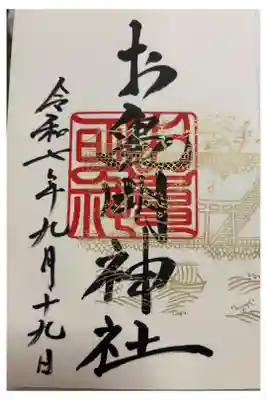 お鶴明神社
令和七年九月十九日